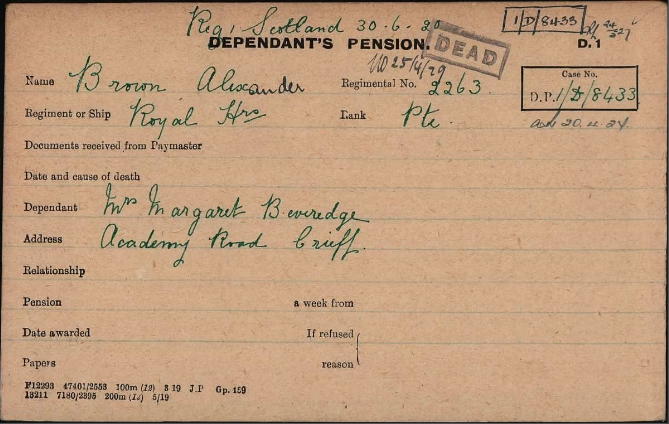 Reg, Scotland 30-6-20
1/D/8433
DEPENDANT'S PENSION.
DEAD
D.1
25/4/29
Name Brown Alexander
Regimental No. 2263
Case No.
D.P./1/D/8433
Regiment or Ship Royal Hrs
Rank Pte.
20.4.24
Documents received from Paymaster
Date and cause of death
Dependant Mrs Margaret Beveredge
Address Academy Road Crieff.
Relationship
Pension a week from
Date awarded If refused
Papers reason
F12293 47401/2553 100m (12) 3 19 J.P Gp. 159
13211 7180/2395 200m (12) 5/19